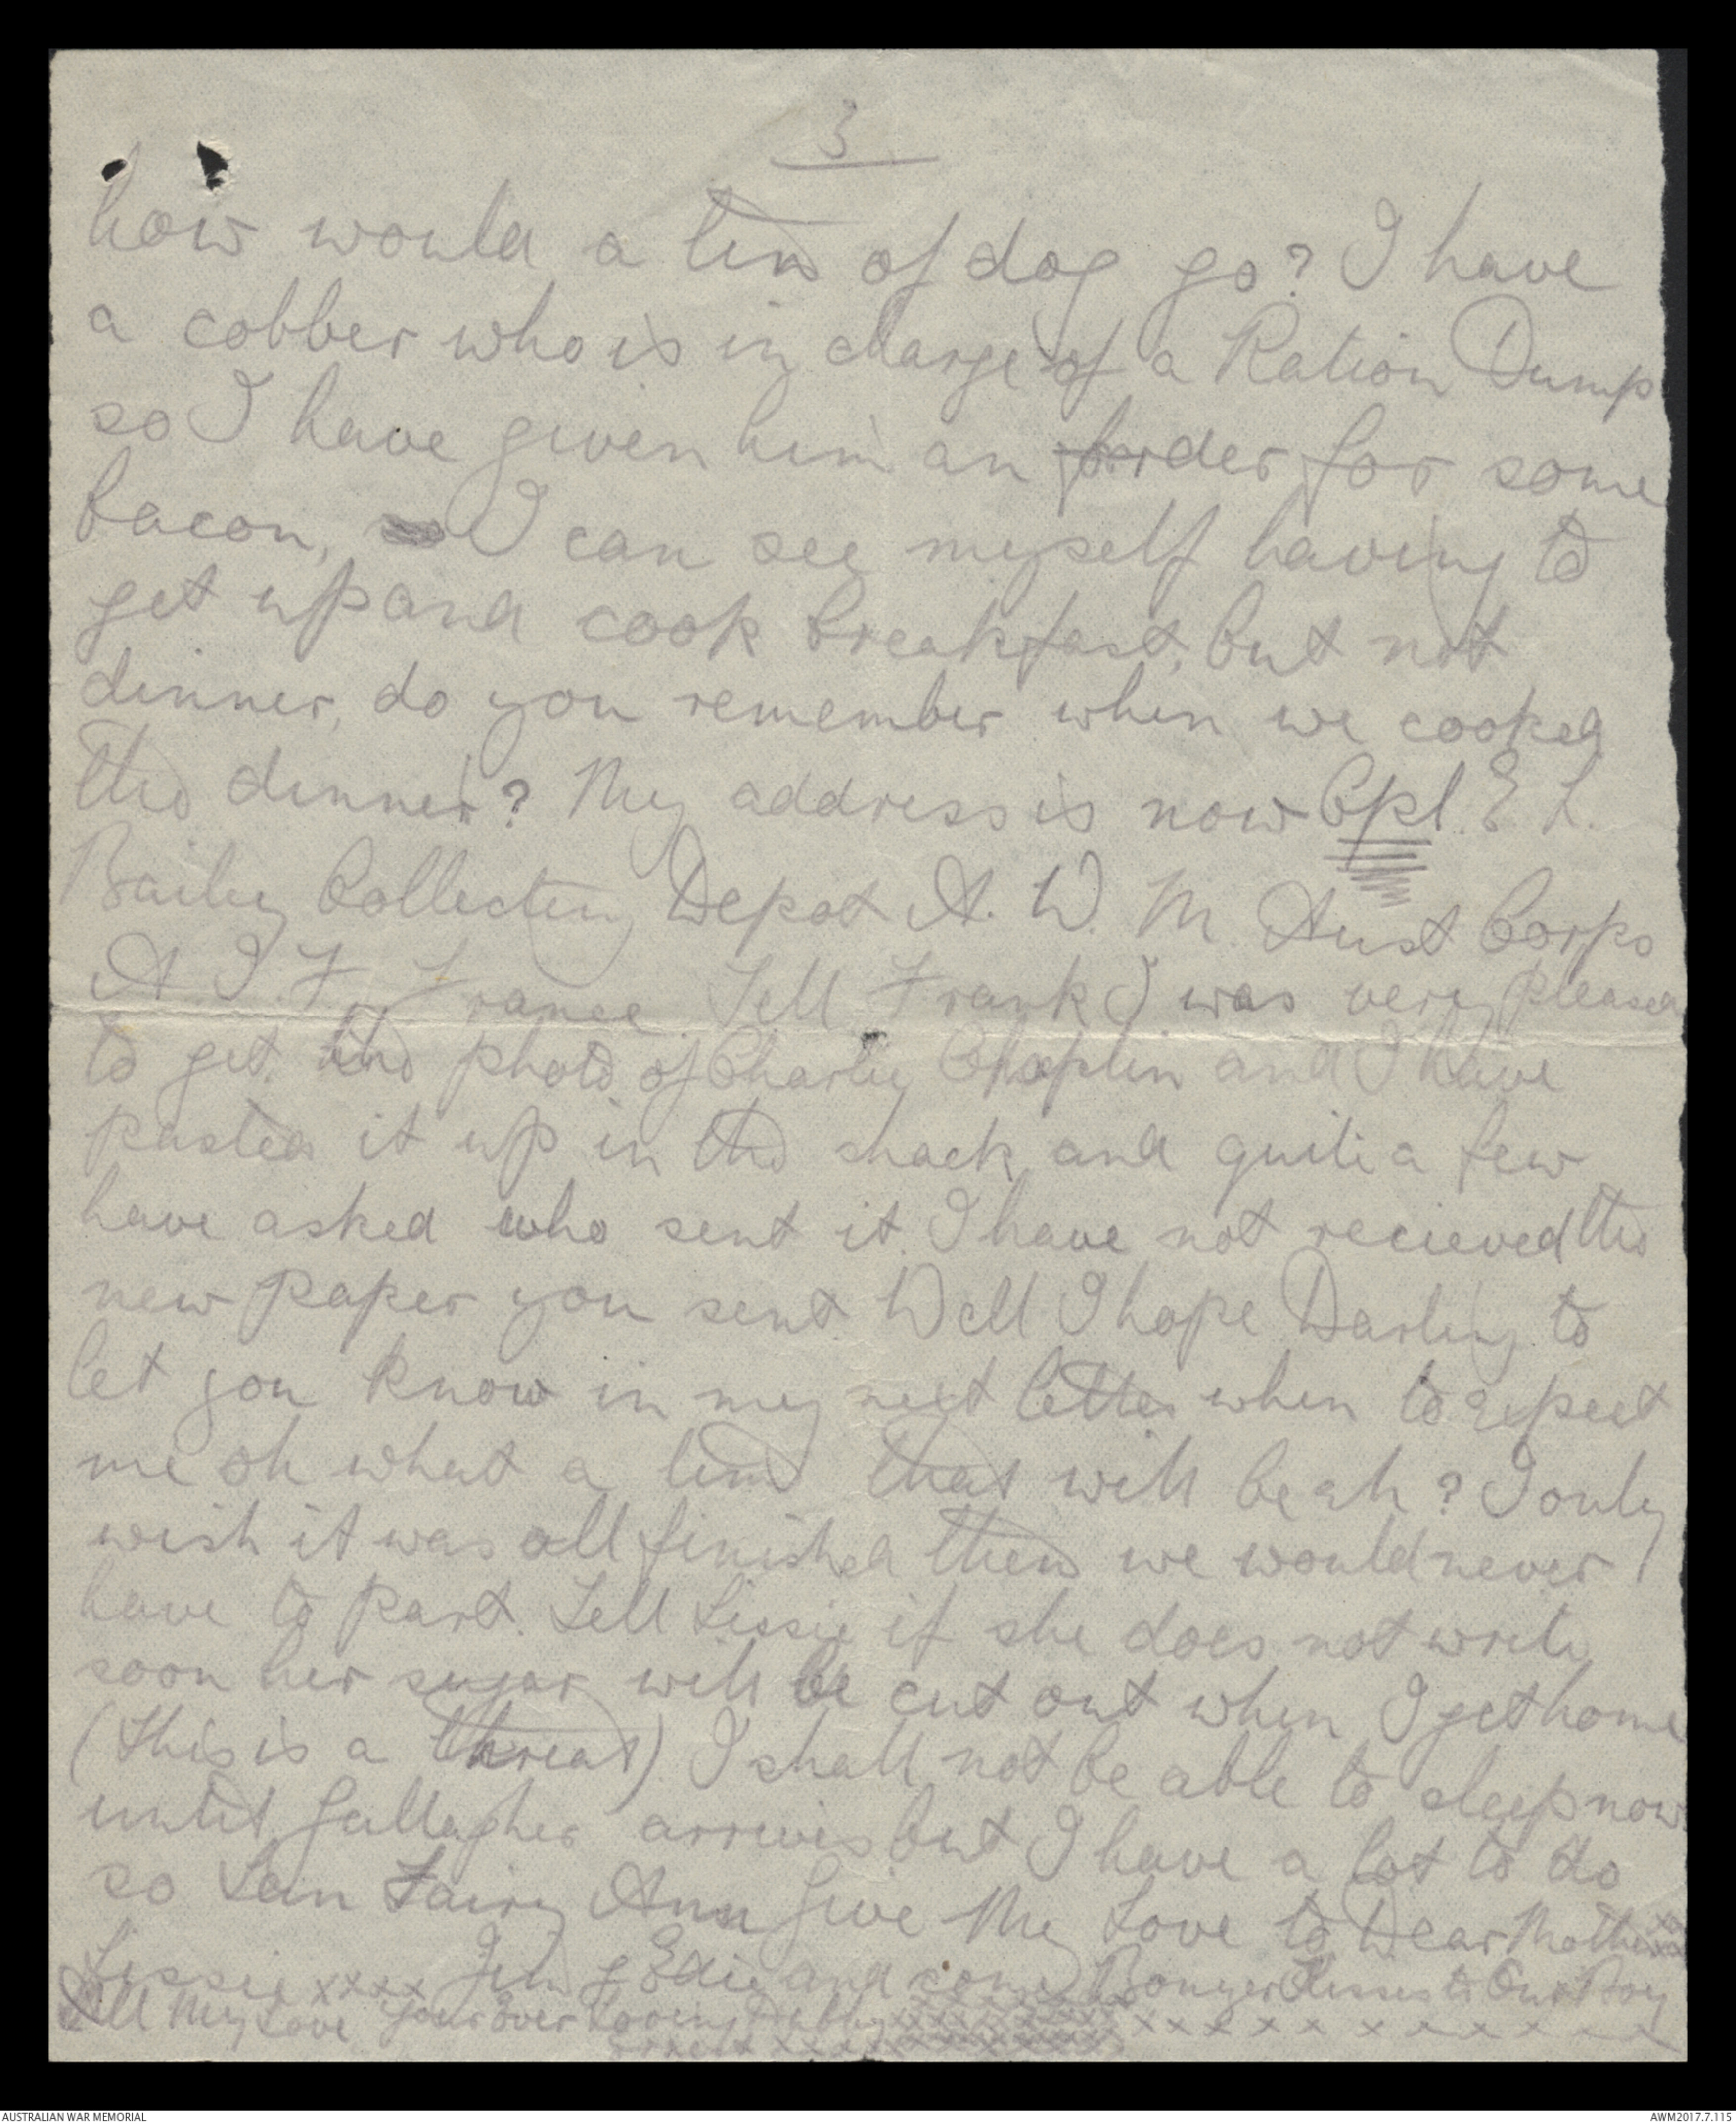 3
how would a tin of dog go? I have
a cobber who is in charge of a Ration Dump
so I have given him an order for some
bacon, I can see myself having to
get up and cook breakfast, but not
dinner, do you remember when we cooked
the dinner? My address is now Cpl. E L.
Bailey Collecting Depot A. W. M. Aust Corps
A I F, France. Tell Frank I was very pleased
to get the photo of Charley Chaplin and I have
pasted it up in the shack and quite a few
have asked who sent it. I have not recieved the
new paper you sent. Well I hope Darling to
let you know in my next letter when to expect
me oh what a time that will be ah? I only
wish it was all finished then we would never
have to part. Tell Lissie if she does not write
soon her sugar will be cut out when I get home
(this is a threat). I shall not be able to sleep now
until Gallagher arrives but I have a lot to do
so San Fairy Ann Give My Love to Dear Mother xx
Lissie xxxx Jim & Edie and some Bonzer Kisses to Our Boy
All My Love Your Ever Loving Hubby xxxxxxxxxxxxxxxxxxxx
xxxxxxxxxxxxxxxx
AUSTRALIAN WAR MEMORIAL
AWM2017.7.115